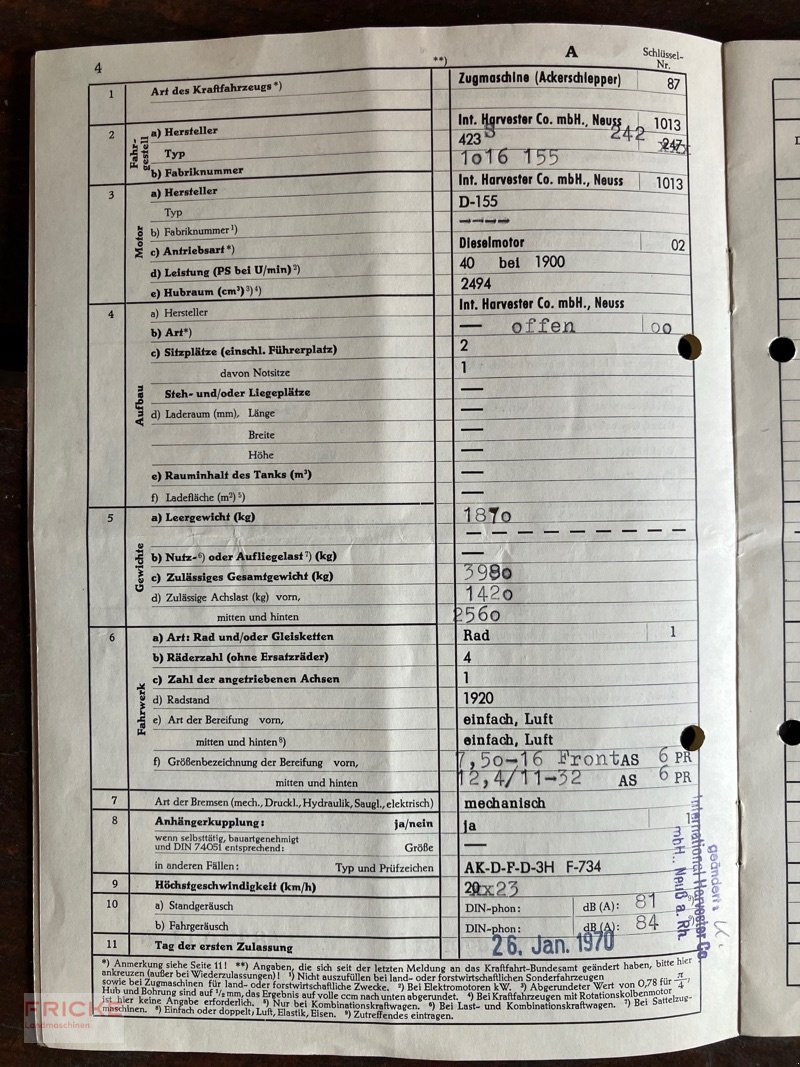 4
**)
A
Schlüssel-
Nr.
1 Art des Kraftfahrzeugs*) Zugmaschine (Ackerschlepper) 87
2 Fahr-
gestell
a) Hersteller Int. Harvester Co. mbH., Neuss 1013
Typ 423 S 242 247
b) Fabriknummer 1o16 155
3 Motor
a) Hersteller Int. Harvester Co. mbH., Neuss 1013
Typ D-155
b) Fabriknummer¹) ----
c) Antriebsart*) Dieselmotor 02
d) Leistung (PS bei U/min)²) 40 bei 1900
e) Hubraum (cm³)³)⁴) 2494
4 Aufbau
a) Hersteller Int. Harvester Co. mbH., Neuss
b) Art*) — offen oo
c) Sitzplätze (einschl. Führerplatz) 2
davon Notsitze 1
Steh- und/oder Liegeplätze —
d) Laderaum (mm), Länge —
Breite —
Höhe —
e) Rauminhalt des Tanks (m³) —
f) Ladefläche (m²)⁵) —
5 Gewichte
a) Leergewicht (kg) 187o
— — — — — — — — — —
b) Nutz-⁶) oder Aufliegelast⁷) (kg) —
c) Zulässiges Gesamtgewicht (kg) 398o
d) Zulässige Achslast (kg) vorn, 142o
mitten und hinten 256o
6 Fahrwerk
a) Art: Rad und/oder Gleisketten Rad 1
b) Räderzahl (ohne Ersatzräder) 4
c) Zahl der angetriebenen Achsen 1
d) Radstand 1920
e) Art der Bereifung vorn, einfach, Luft
mitten und hinten⁸) einfach, Luft
f) Größenbezeichnung der Bereifung vorn, 7,5o-16 Front AS 6 PR
mitten und hinten 12,4/11-32 AS 6 PR
7 Art der Bremsen (mech., Druckl., Hydraulik, Saugl., elektrisch) mechanisch
8 Anhängerkupplung: ja/nein ja 1
wenn selbsttätig, bauartgenehmigt
und DIN 74051 entsprechend: Größe —
in anderen Fällen: Typ und Prüfzeichen AK-D-F-D-3H F-734
9 Höchstgeschwindigkeit (km/h) 20 xx 23
10 a) Standgeräusch DIN-phon: dB (A): 81
b) Fahrgeräusch DIN-phon: dB (A): 84
11 Tag der ersten Zulassung 26. Jan. 1970
geändert:
International Harvester Co.
mbH., Neuß a. Rh.
*) Anmerkung siehe Seite 11! **) Angaben, die sich seit der letzten Meldung an das Kraftfahrt-Bundesamt geändert haben, bitte hier
ankreuzen (außer bei Wiederzulassungen)! ¹) Nicht auszufüllen bei land- oder forstwirtschaftlichen Sonderfahrzeugen
sowie bei Zugmaschinen für land- oder forstwirtschaftliche Zwecke. ²) Bei Elektromotoren kW. ³) Abgerundeter Wert von 0,78 für π/4,
Hub und Bohrung sind auf ½ mm, das Ergebnis auf volle ccm nach unten abgerundet. ⁴) Bei Kraftfahrzeugen mit Rotationskolbenmotor
ist hier keine Angabe erforderlich. ⁵) Nur bei Kombinationskraftwagen. ⁶) Bei Last- und Kombinationskraftwagen. ⁷) Bei Sattelzug-
maschinen. ⁸) Einfach oder doppelt; Luft, Elastik, Eisen. ⁹) Zutreffendes eintragen.
FRICKE
Landmaschinen